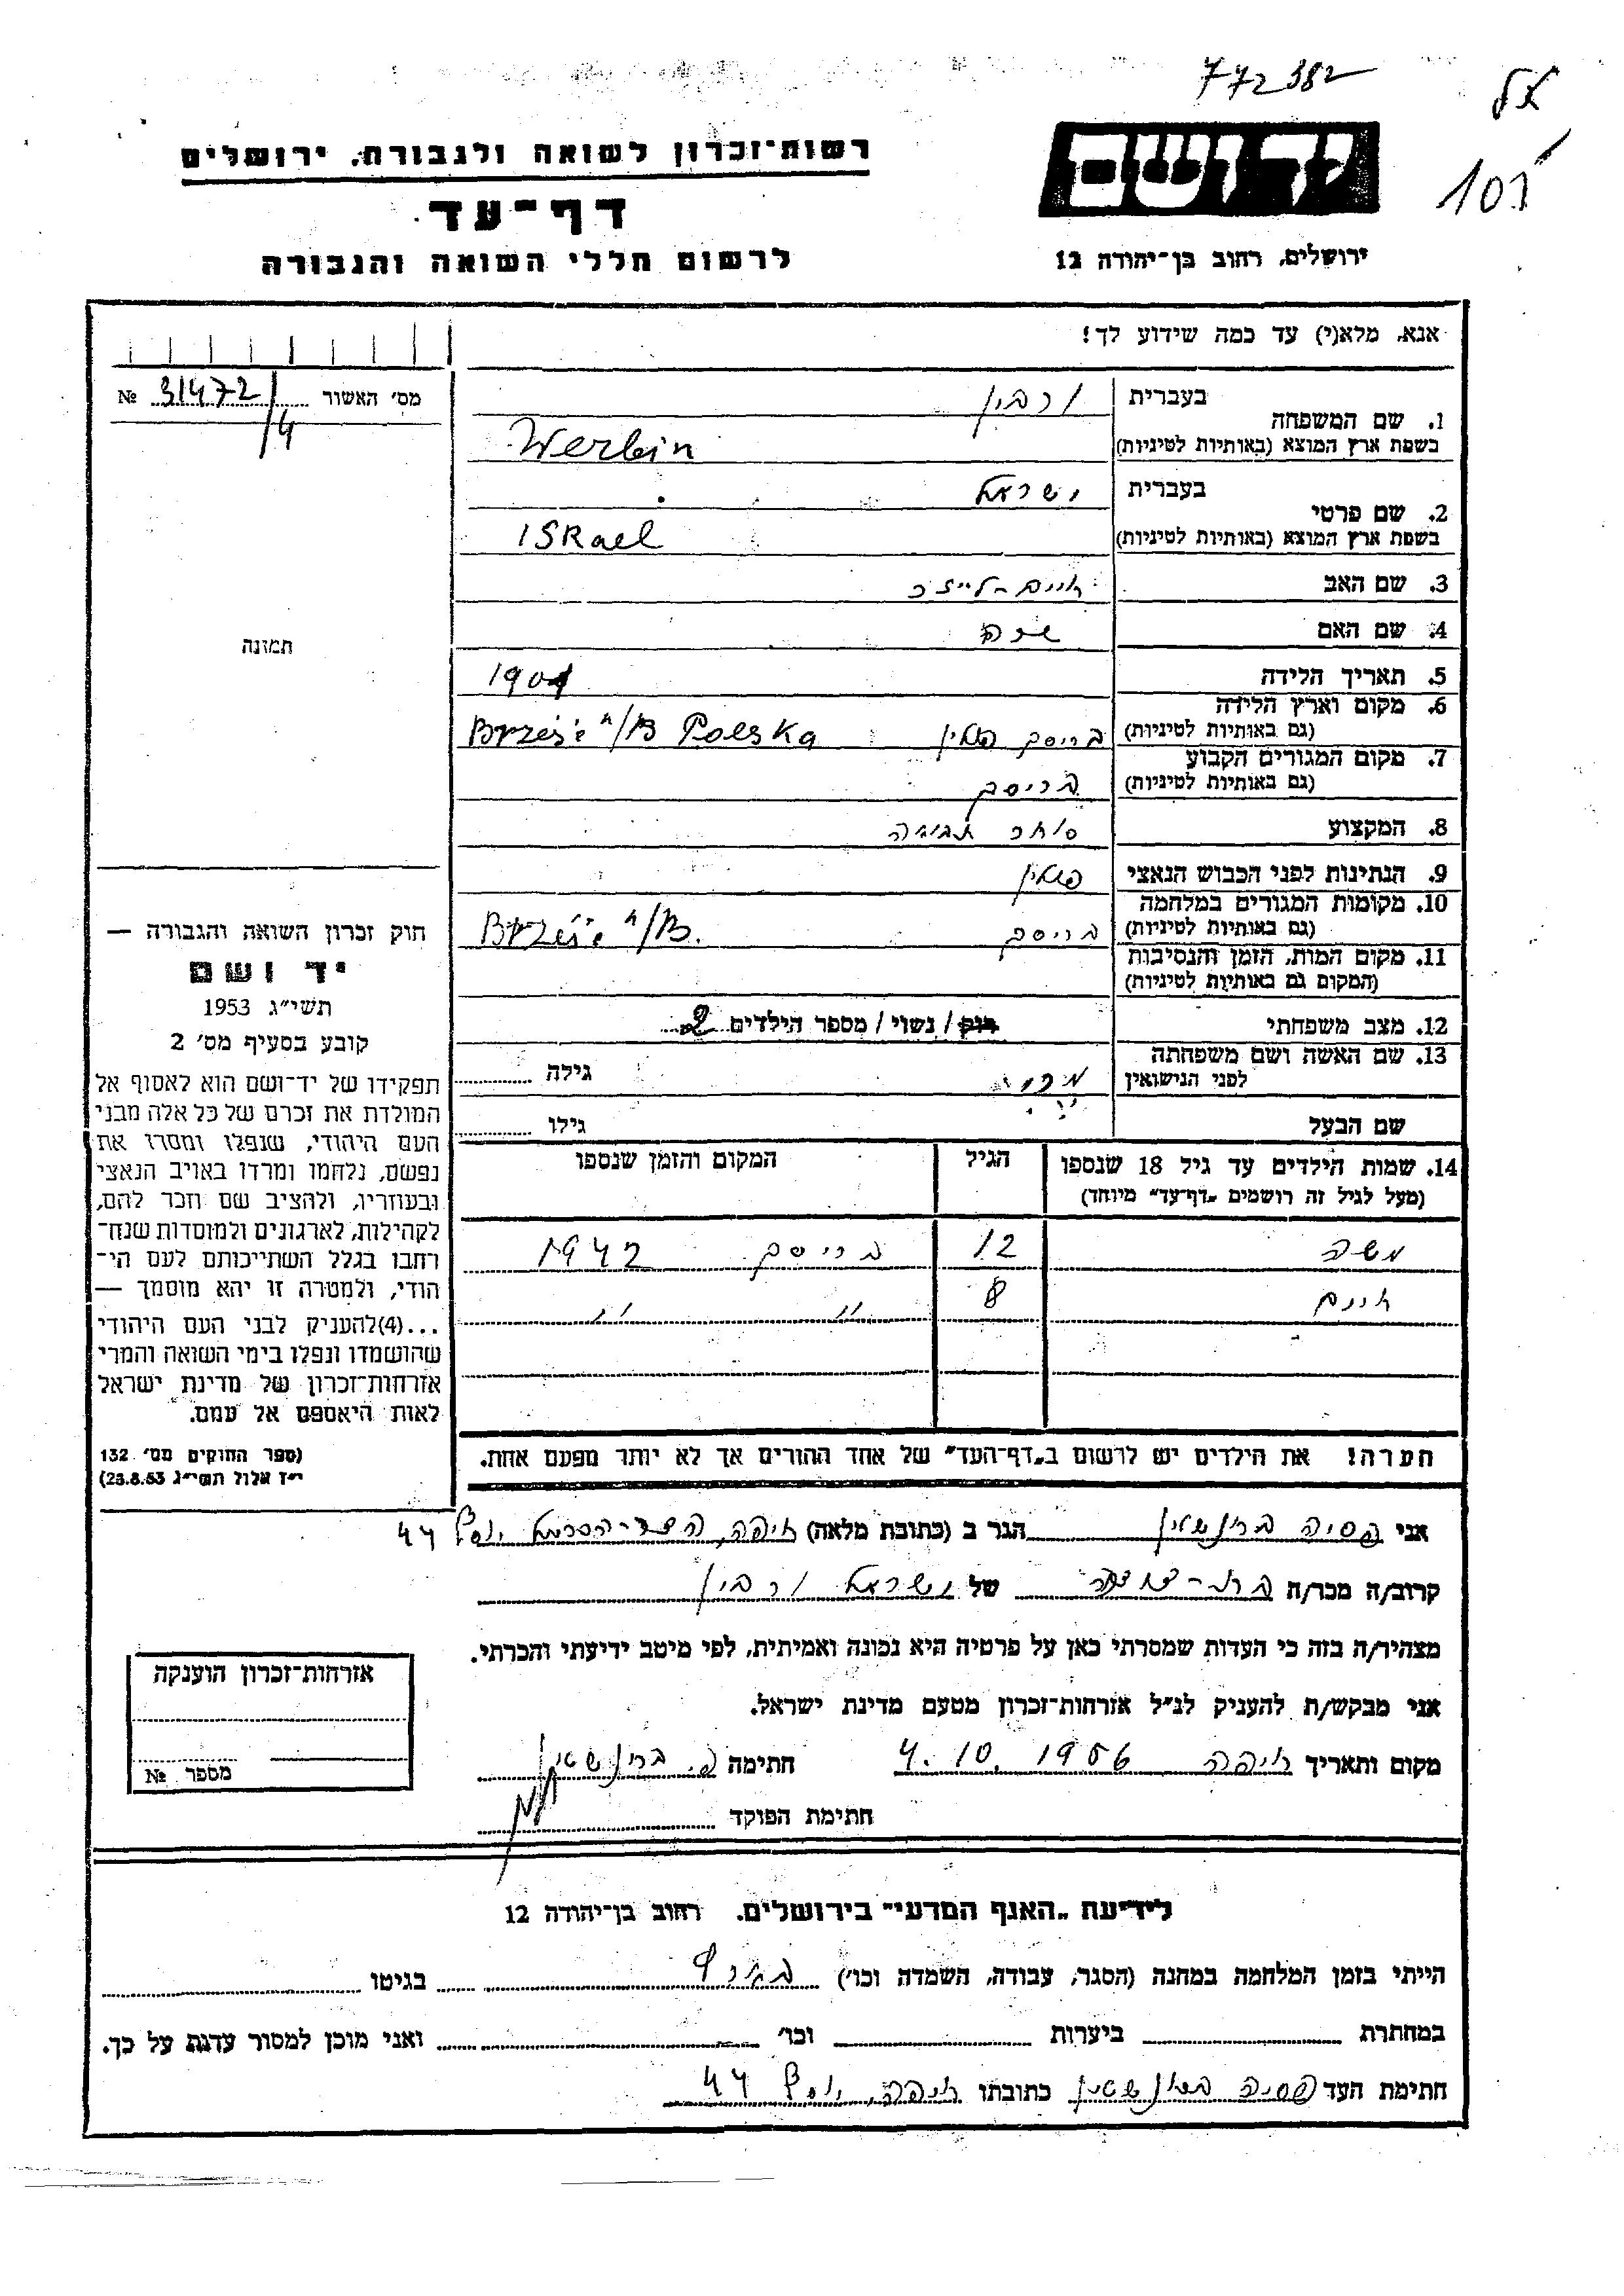 772382
רשות־זכרון לשואה ולגבורה, ירושלים
יד ושם
דף־עד
לרשום חללי השואה והגבורה
ירושלים, רחוב בן־יהודה 12
אנא, מלא(י) עד כמה שידוע לך!
מס׳ האשור № 31472/
/4
בעברית ורבין
1. שם המשפחה
בשפת ארץ המוצא (באותיות לטיניות) Werbin
בעברית ישראל
2. שם פרטי
בשפת ארץ המוצא (באותיות לטיניות) ISRael
3. שם האב חיים-לייזר
4. שם האם שרה
5. תאריך הלידה
6. מקום וארץ הלידה
(גם באותיות לטיניות) בריסק פולין Brześć n/B Polska
7. מקום המגורים הקבוע
(גם באותיות לטיניות) בריסק
8. המקצוע סוחר תבואה
9. הנתינות לפני הכבוש הנאצי פולין
10. מקומות המגורים במלחמה
(גם באותיות לטיניות) בריסק Brześć n/B.
11. מקום המות, הזמן והנסיבות
(המקום גם באותיות לטיניות)
12. מצב משפחתי רוק / נשוי / מספר הילדים 2
13. שם האשה ושם משפחתה גילה
לפני הנישואין
שם הבעל גילו
14. שמות הילדים עד גיל 18 שנספו הגיל המקום והזמן שנספו
(מעל לגיל זה רושמים „דף־עד” מיוחד)
משה 12 בריסק 1942
חיים 8 " "
הערה! את הילדים יש לרשום ב„דף־העד” של אחד ההורים אך לא יותר מפעם אחת.
תמונה
חוק זכרון השואה והגבורה —
יד ושם
תשי״ג 1953
קובע בסעיף מס׳ 2
תפקידו של יד־ושם הוא לאסוף אל
המולדת את זכרם של כל אלה מבני
העם היהודי, שנפלו ומסרו את
נפשם, נלחמו ומרדו באויב הנאצי
ובעוזריו, ולהציב שם וזכר להם,
לקהילות, לארגונים ולמוסדות שנח־
רבו בגלל השתייכותם לעם הי־
הודי, ולמטרה זו יהא מוסמך —
...(4)להעניק לבני העם היהודי
שהושמדו ונפלו בימי השואה והמרי
אזרחות־זכרון של מדינת ישראל
לאות היאספם אל עמם.
(ספר החוקים מס׳ 132
י״ז אלול תשי״ג 23.8.53)
אני פסיה ברונשטין הגר ב (כתובת מלאה) חיפה, הדר-הכרמל יוסף 44
קרוב/ה מכר/ה של ישראל ורבין
מצהיר/ה בזה כי העדות שמסרתי כאן על פרטיה היא נכונה ואמיתית, לפי מיטב ידיעתי והכרתי.
אני מבקש/ת להעניק לנ״ל אזרחות־זכרון מטעם מדינת ישראל.
מקום ותאריך חיפה 4.10.1956 חתימה פ. ברונשטין
חתימת הפוקד
אזרחות־זכרון הוענקה
מספר №
לידיעת „האגף המדעי” בירושלים. רחוב בן־יהודה 12
הייתי בזמן המלחמה במחנה (הסגר, עבודה, השמדה וכו׳) בגיטו
במחתרת ביערות וכו׳ ואני מוכן למסור עדות על כך.
חתימת העד פסיה ברונשטין כתובתו חיפה, יוסף 44